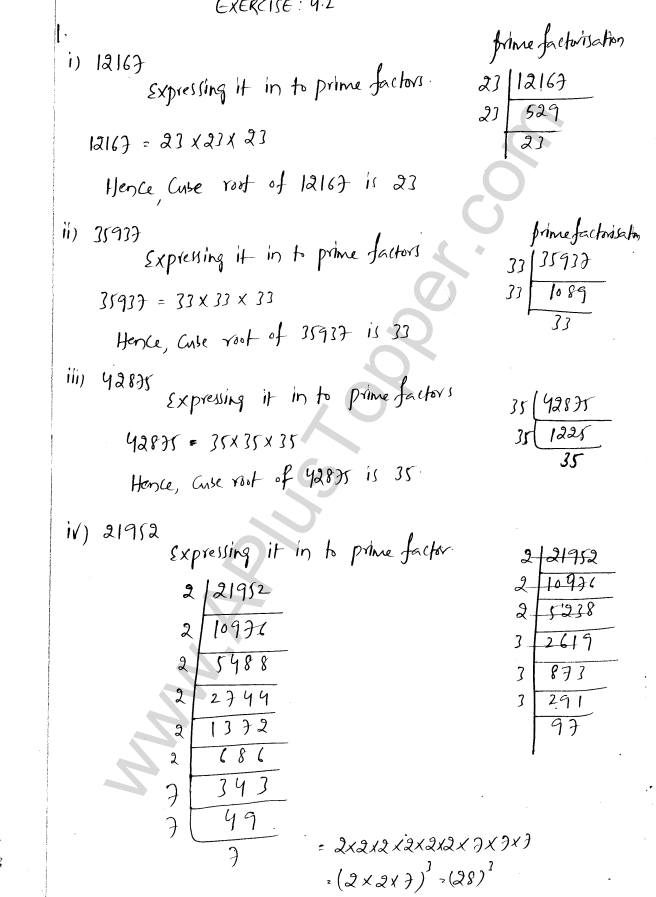 EXERCISE: 4.2
1.
prime factorisation
i) 12167
Expressing it in to prime factors.
23 | 12167
23 | 529
23
12167 = 23 × 23 × 23
Hence, Cube root of 12167 is 23
ii) 35937
prime factorisatn
Expressing it in to prime factors
33 | 35937
33 | 1089
33
35937 = 33 × 33 × 33
Hence, Cube root of 35937 is 33
iii) 42875
Expressing it in to prime factors
35 | 42875
35 | 1225
35
42875 = 35 × 35 × 35
Hence, Cube root of 42875 is 35.
iv) 21952
Expressing it in to prime factor.
2 | 21952
2 | 10976
2 | 5488
2 | 2744
2 | 1372
2 | 686
7 | 343
7 | 49
7
2 | 21952
2 | 10976
2 | 5238
3 | 2619
3 | 873
3 | 291
97
= 2×2×2×2×2×2×7×7×7
= (2×2×7)³ = (28)³
www.APlusTopper.com